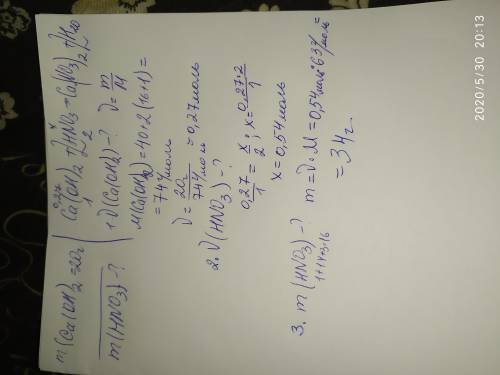 m(Ca(OH)2=20г
m(HNO3)-?
0,27 x
Ca(OH)2+2HNO3=Ca(NO3)2+2H2O
1 2
1. ν(Ca(OH)2)-? ν=m/M
M(Ca(OH)2)=40+2(16+1)=
=74г/моль
ν=20г/74г/моль=0,27моль
2. ν(HNO3)-?
0,27/1=x/2; x=0,27·2/1
x=0,54моль
3. m(HNO3)-? m=ν·M=0,54моль·63г/моль=
1+14+3·16
=34г
2020/5/30 20:13